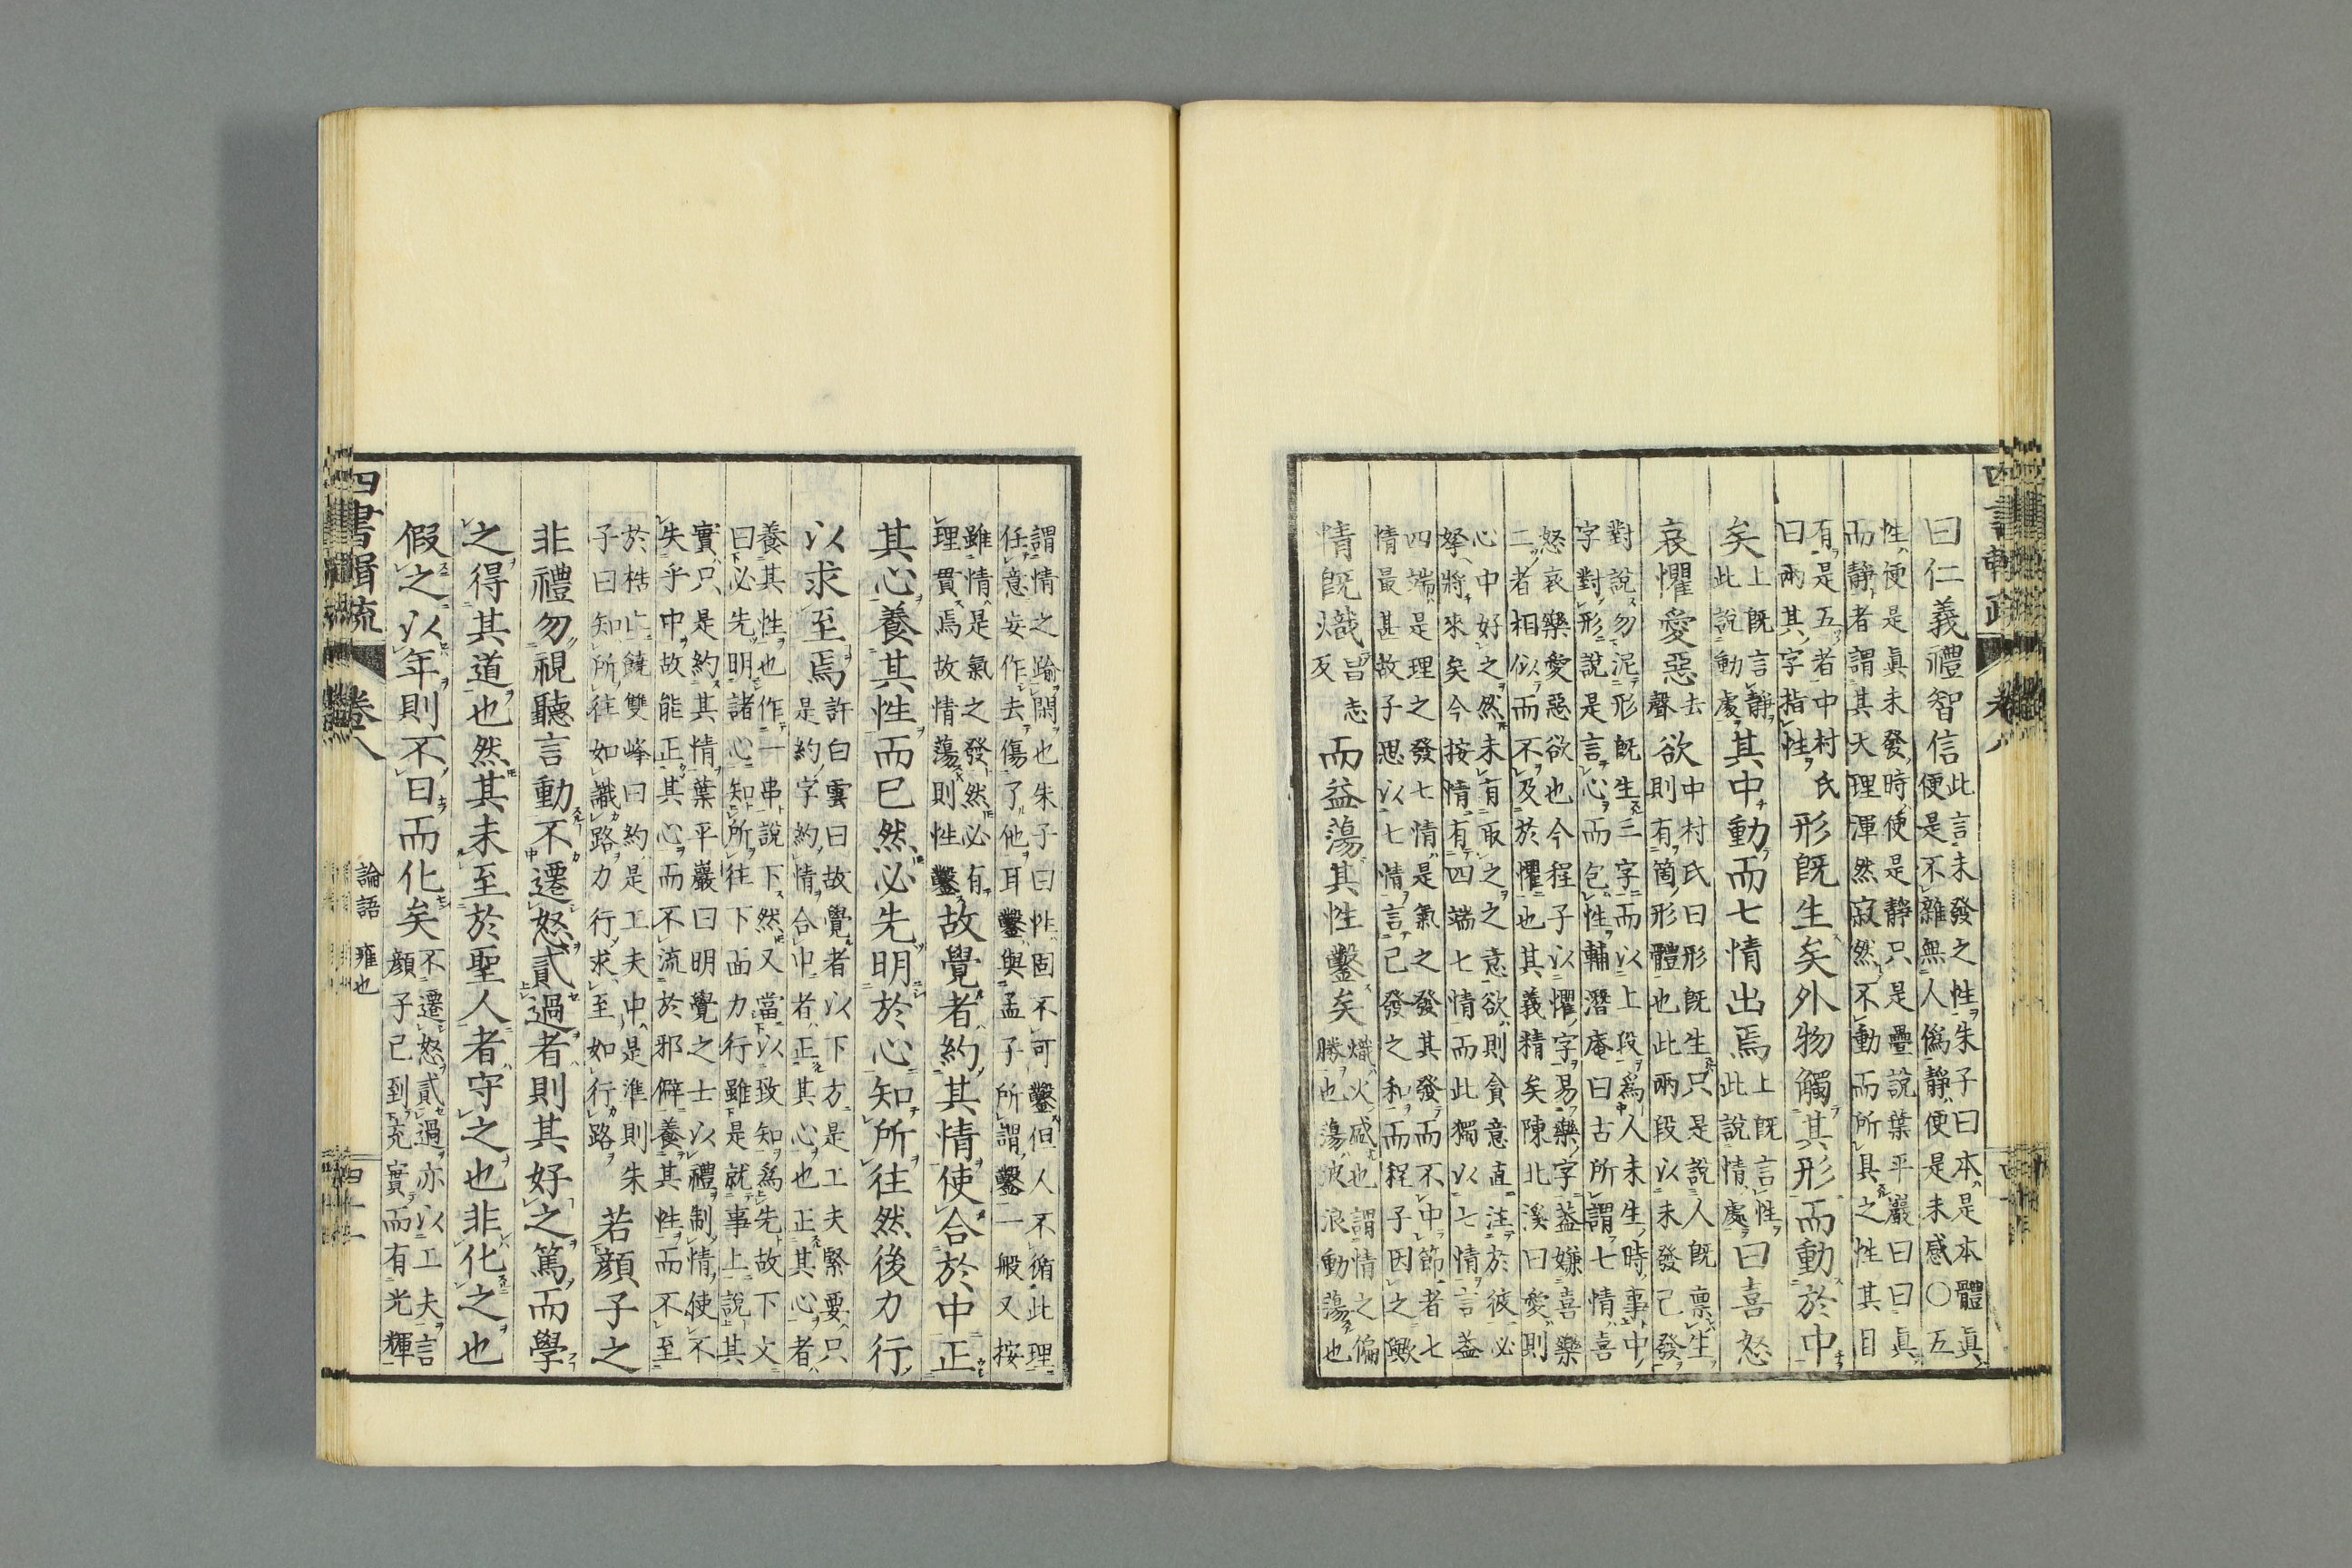 曰仁義禮智信此言未發之性朱子曰本是本體眞
便是不雜無人僞靜便是未感〇五
性便是眞未發時便是靜只是疊說葉平巖曰曰眞
而靜者謂其天理渾然寂然不動而所具之性其目
有是五者中村氏
曰兩其字指性形既生矣外物觸其形而動於中
矣上既言靜
此說動處其中動而七情出焉上既言性
此說情處曰喜怒
哀懼愛惡去
聲欲中村氏曰形既生只是說人既稟生
則有箇形體也此兩段以未發已發
對說勿泥形既生三字而以上段爲人未生時事中
字對形說是言心而包性輔潛庵曰古所謂七情喜
怒哀樂愛惡欲也今程子以懼字易樂字蓋嫌喜樂
二者相似而不及於懼也其義精矣陳北溪曰愛則
心中好之然未有取之之意欲則貪意直注於彼必
拏將來矣今按情有四端七情而此獨以七情言蓋
四端是理之發七情是氣之發其發而不中節者七
情最甚故子思以七情言已發之和而程子因之歟
情既熾昌志
反而益蕩其性鑿矣熾火盛也謂情之偏
勝也蕩波浪動蕩也
謂情之踰閑也朱子曰性固不可鑿但人不循此理
任意妄作去傷了他耳鑿與孟子所謂鑿一般又按
雖情是氣之發然必有
理貫焉故情蕩則性鑿故覺者約其情使合於中正
其心養其性而已然必先明於心知所往然後力行
以求至焉許白雲曰故覺者以下方是工夫緊要只
是約字約情合中者正其心也正其心者
養其性也作一串說下然又當以致知爲先故下文
曰必先明諸心知所往下面力行雖是就事上說其
實只是約其情葉平巖曰明覺之士以禮制情使不
失乎中故能正其心而不流於邪僻養其性而不至
於梏亡饒雙峰曰約是工夫中是準則朱
子曰知所往如識路力行求至如行路若顏子之
非禮勿視聽言動不遷怒貳過者則其好之篤而學
之得其道也然其未至於聖人者守之也非化之也
假之以年則不曰而化矣不遷怒貳過亦以工夫言
顏子已到充實而有光輝
四書輯疏 卷八 論語 雍也